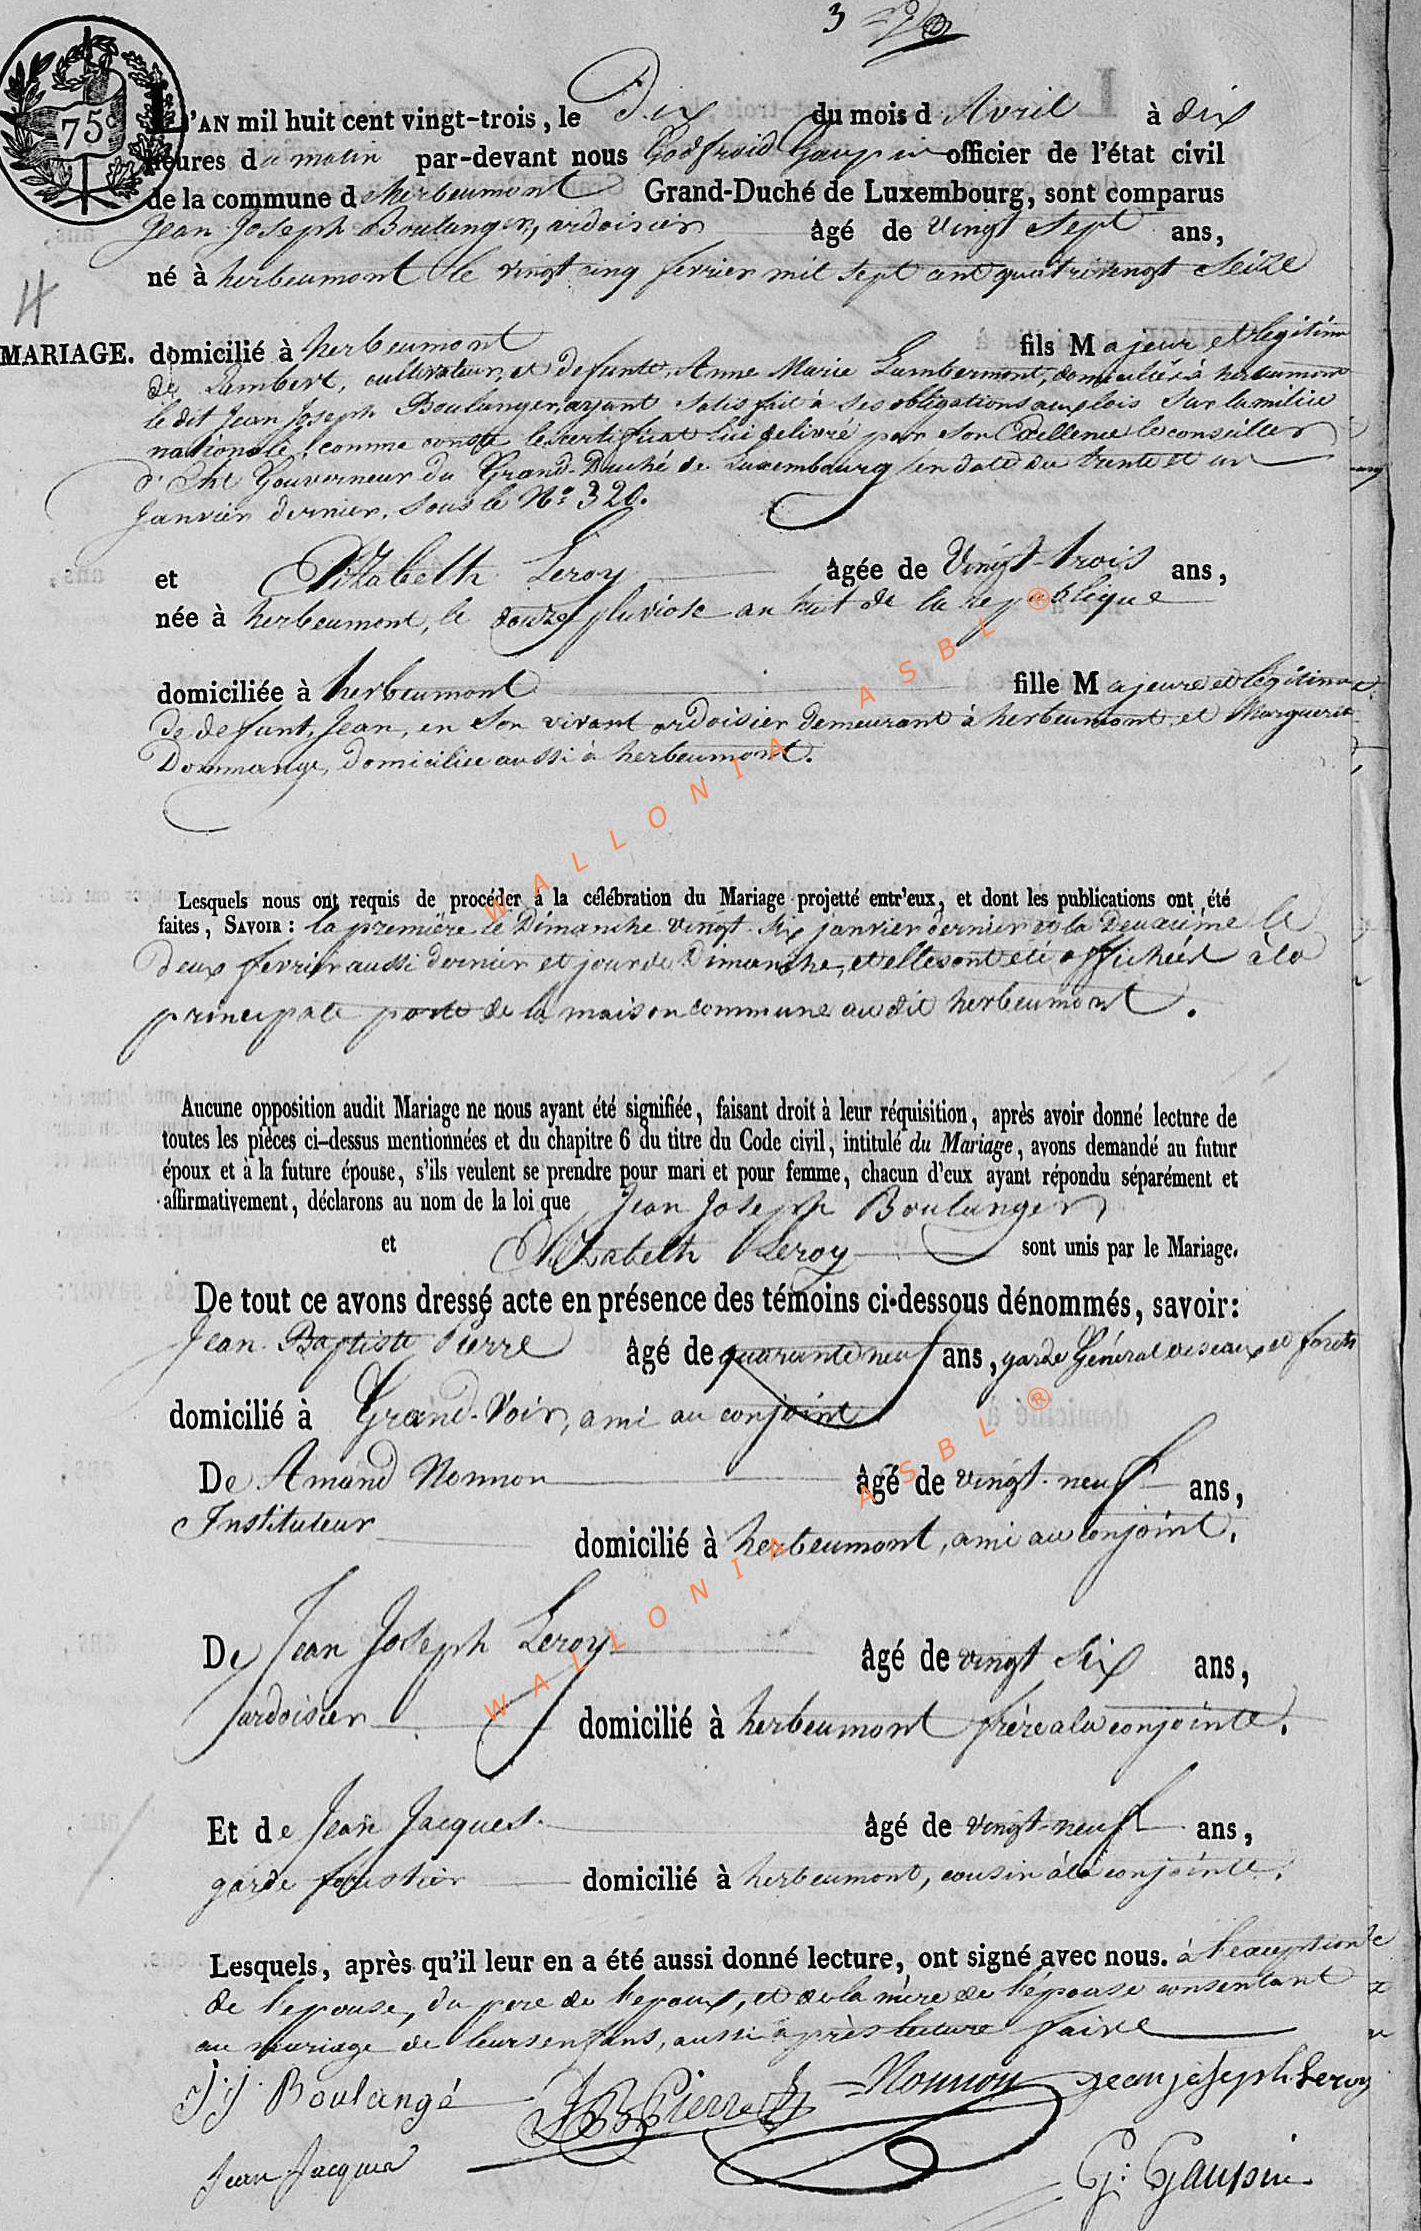 75c
L'AN mil huit cent vingt-trois, le Dix du mois d Avril à dix
heures du matin par-devant nous Godfroid Gaupin officier de l'état civil
de la commune d herbeumont Grand-Duché de Luxembourg, sont comparus
Jean Joseph Boulanger, ardoisier âgé de Vingt Sept ans,
né à herbeumont le vingt cinq fevrier mil sept cent quatrevingt Seize
4
MARIAGE. domicilié à herbeumont fils Majeur et légitime
de Lambert, cultivateur, et defunte, Anne Marie Lambermont, domiciliés à herbeumont
le dit Jean Joseph Boulanger, ayant satisfait à ses obligations aux lois sur la milice
nationale, comme conste le certificat lui delivré par son Excellence le conseiller
d'état Gouverneur du Grand-Duché de Luxembourg en date du trente et un
Janvier dernier, sous le No 320.
et Elizabeth Leroy âgée de Vingt-trois ans,
née à herbeumont, le douze pluviose an huit de la republique
domiciliée à herbeumont fille Majeure et légitime
de defunt, Jean, en son vivant ardoisier demeurant à herbeumont, et Marguerite
Dommange, domiciliée aussi à herbeumont.
Lesquels nous ont requis de procéder à la célébration du Mariage projetté entr'eux, et dont les publications ont été
faites, SAVOIR : la première le Dimanche vingt-six janvier dernier et la Deuxième le
deux fevrier aussi dernier et jour de Dimanche, et elles ont été affichées à la
principale porte de la maison commune au dit herbeumont.
Aucune opposition audit Mariage ne nous ayant été signifiée, faisant droit à leur réquisition, après avoir donné lecture de
toutes les pièces ci-dessus mentionnées et du chapitre 6 du titre du Code civil, intitulé du Mariage, avons demandé au futur
époux et à la future épouse, s'ils veulent se prendre pour mari et pour femme, chacun d'eux ayant répondu séparément et
affirmativement, déclarons au nom de la loi que Jean Joseph Boulanger
et Elizabeth Leroy sont unis par le Mariage.
De tout ce avons dressé acte en présence des témoins ci-dessous dénommés, savoir:
Jean Baptiste Pierre âgé de quarante neuf ans, garde Général des eaux et forêts
domicilié à Grand-Voir, ami au conjoint
De Amand Nonnon âgé de vingt-neuf ans,
Instituteur domicilié à herbeumont, ami au conjoint.
De Jean Joseph Leroy âgé de vingt Six ans,
ardoisier domicilié à herbeumont frère a la conjointe.
Et de Jean Jacques âgé de vingt-neuf ans,
garde forestier domicilié à herbeumont, cousin à la conjointe.
Lesquels, après qu'il leur en a été aussi donné lecture, ont signé avec nous. à l'exception
de l'epouse, du pere de l'epoux, et de la mère de l'épouse consentant
au mariage de leurs enfans, aussi après lecture faire
J. J. Boulangé JB Pierre Nonnon jean joseph Leroy
Jean Jacques G: Gaupin
WALLONIA ASBL ®
WALLONIA ASBL ®